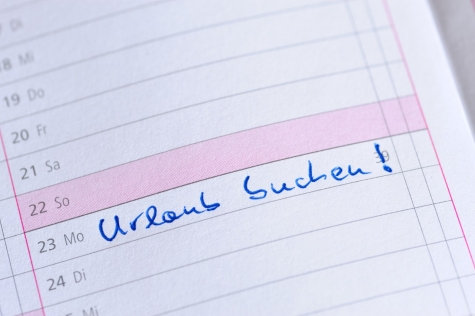 Di
8 Mi
19 Do
20 Fr
21 Sa
22 So
23 Mo Urlaub buchen! 39
24 Di
Mi